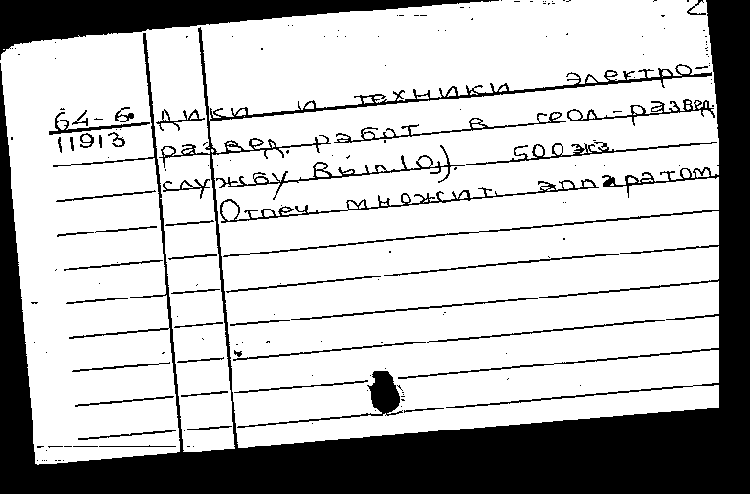 2
64-6 дики и техники электро-
11913 развед. работ в геол.-развед.
службу. Вып. 10,). 500 экз.
Отпеч. множит. аппаратом.